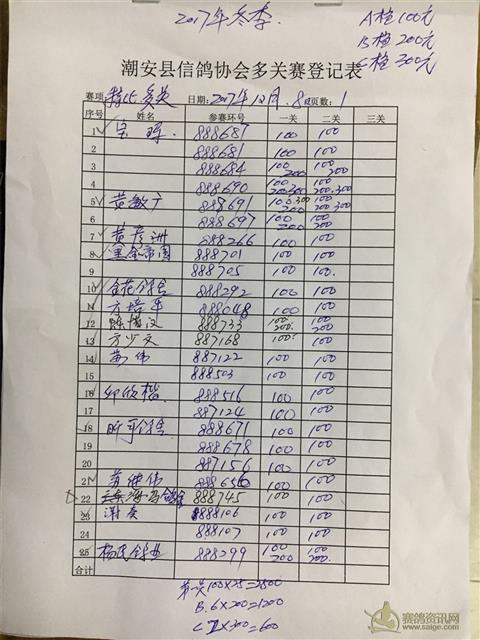 2017年冬季.
A档100元
B档200元
C档300元
潮安县信鸽协会多关赛登记表
赛项 特比多关 日期: 2017年12月.8 页数: 1
序号 姓名 参赛环号 一关 二关 三关
1 888687 100 100
2 888681 100 100
3 888684 100 200 100 200
4 888690 100 200.300 100 200.300
5 黄教广 888691 100.300 200 100 200.300
6 888697 100 200 100 200
7 888266 100 100
8 黑金帝国 888701 100 100
9 888705 100 100.
10 金花鸽舍 888292 100 100
11 方培平 888048 100 100
12 888733 100. 200. 100. 200
13 方少文 887168 100. 100
14 黄伟 887122 100 100
15 888503 100 100
16 888516 100 100
17 887124 100 100
18 昕哥鸽舍 888671 100 100
19 888678 100 100
20 887156 100 100
21 黄继伟 888656 100 100
22 888745 100 100
23 谢矣 888106 100 100
24 888107 100 100
25 杨氏鸽业 888299 100 200 100 200
合计
第一关100×25=2500
B. 6×200=1200
C 2×300=600
赛鸽资讯网
www.saige.com